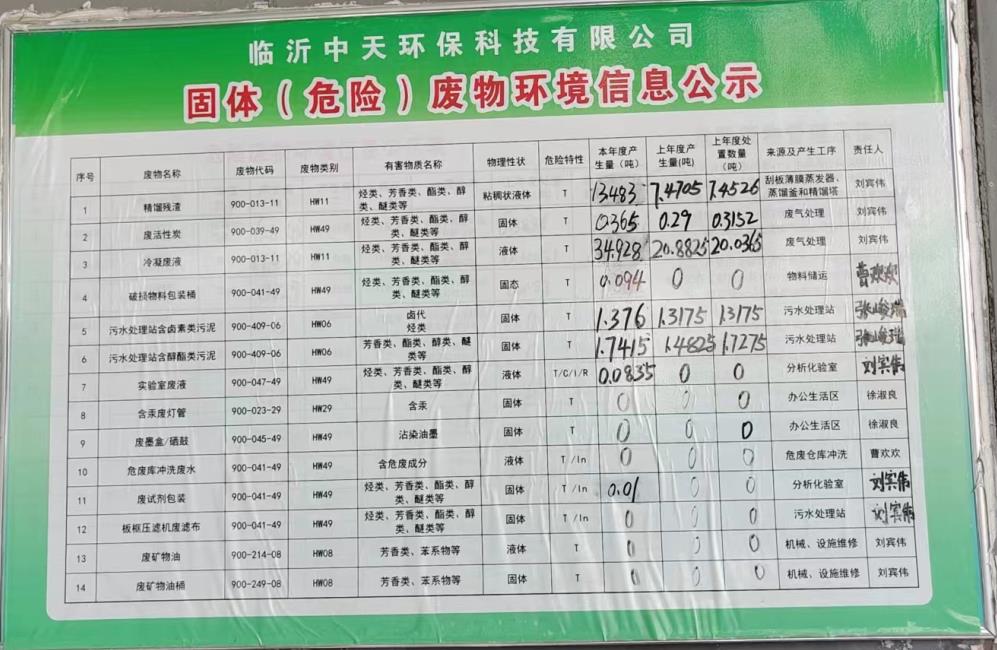 临沂中天环保科技有限公司
固体（危险）废物环境信息公示
序号 废物名称 废物代码 废物类别 有害物质名称 物理性状 危险特性 本年度产生量（吨） 上年度产生量(吨) 上年度处置数量（吨） 来源及产生工序 责任人
1 精馏残渣 900-013-11 HW11 烃类、芳香类、酯类、醇类、醚类等 粘稠状液体 T 13483 7.4705 7.4526 刮板薄膜蒸发器、蒸馏釜和精馏塔 刘宾伟
2 废活性炭 900-039-49 HW49 烃类、芳香类、酯类、醇类、醚类等 固体 T 0.365 0.29 0.3152 废气处理 刘宾伟
3 冷凝废液 900-013-11 HW11 烃类、芳香类、酯类、醇类、醚类等 液体 T 34.928 20.8825 20.0365 废气处理 刘宾伟
4 破损物料包装桶 900-041-49 HW49 烃类、芳香类、酯类、醇类、醚类等 固态 T 0.094 0 0 物料储运 曹欢欢
5 污水处理站含卤素类污泥 900-409-06 HW06 卤代烃类 固体 T 1.376 1.3175 1.3175 污水处理站 张峻瑞
6 污水处理站含醇酯类污泥 900-409-06 HW06 芳香类、酯类、醇类、醚类等 固体 T 1.7415 1.4825 1.7275 污水处理站 张峻瑞
7 实验室废液 900-047-49 HW49 烃类、芳香类、酯类、醇类、醚类等 液体 T/C/I/R 0.0835 0 0 分析化验室 刘宾伟
8 含汞废灯管 900-023-29 HW29 含汞 固体 T 0 0 0 办公生活区 徐淑良
9 废墨盒/硒鼓 900-045-49 HW49 沾染油墨 固体 T 0 0 0 办公生活区 徐淑良
10 危废库冲洗废水 900-041-49 HW49 含危废成分 液体 T /In 0 0 0 危废仓库冲洗 曹欢欢
11 废试剂包装 900-041-49 HW49 烃类、芳香类、酯类、醇类、醚类等 固体 T /In 0.01 0 0 分析化验室 刘宾伟
12 板框压滤机废滤布 900-041-49 HW49 烃类、芳香类、酯类、醇类、醚类等 固体 T /In 0 0 0 污水处理站 刘宾伟
13 废矿物油 900-214-08 HW08 芳香类、苯系物等 液体 T 0 0 0 机械、设施维修 刘宾伟
14 废矿物油桶 900-249-08 HW08 芳香类、苯系物等 固体 T 0 0 0 机械、设施维修 刘宾伟